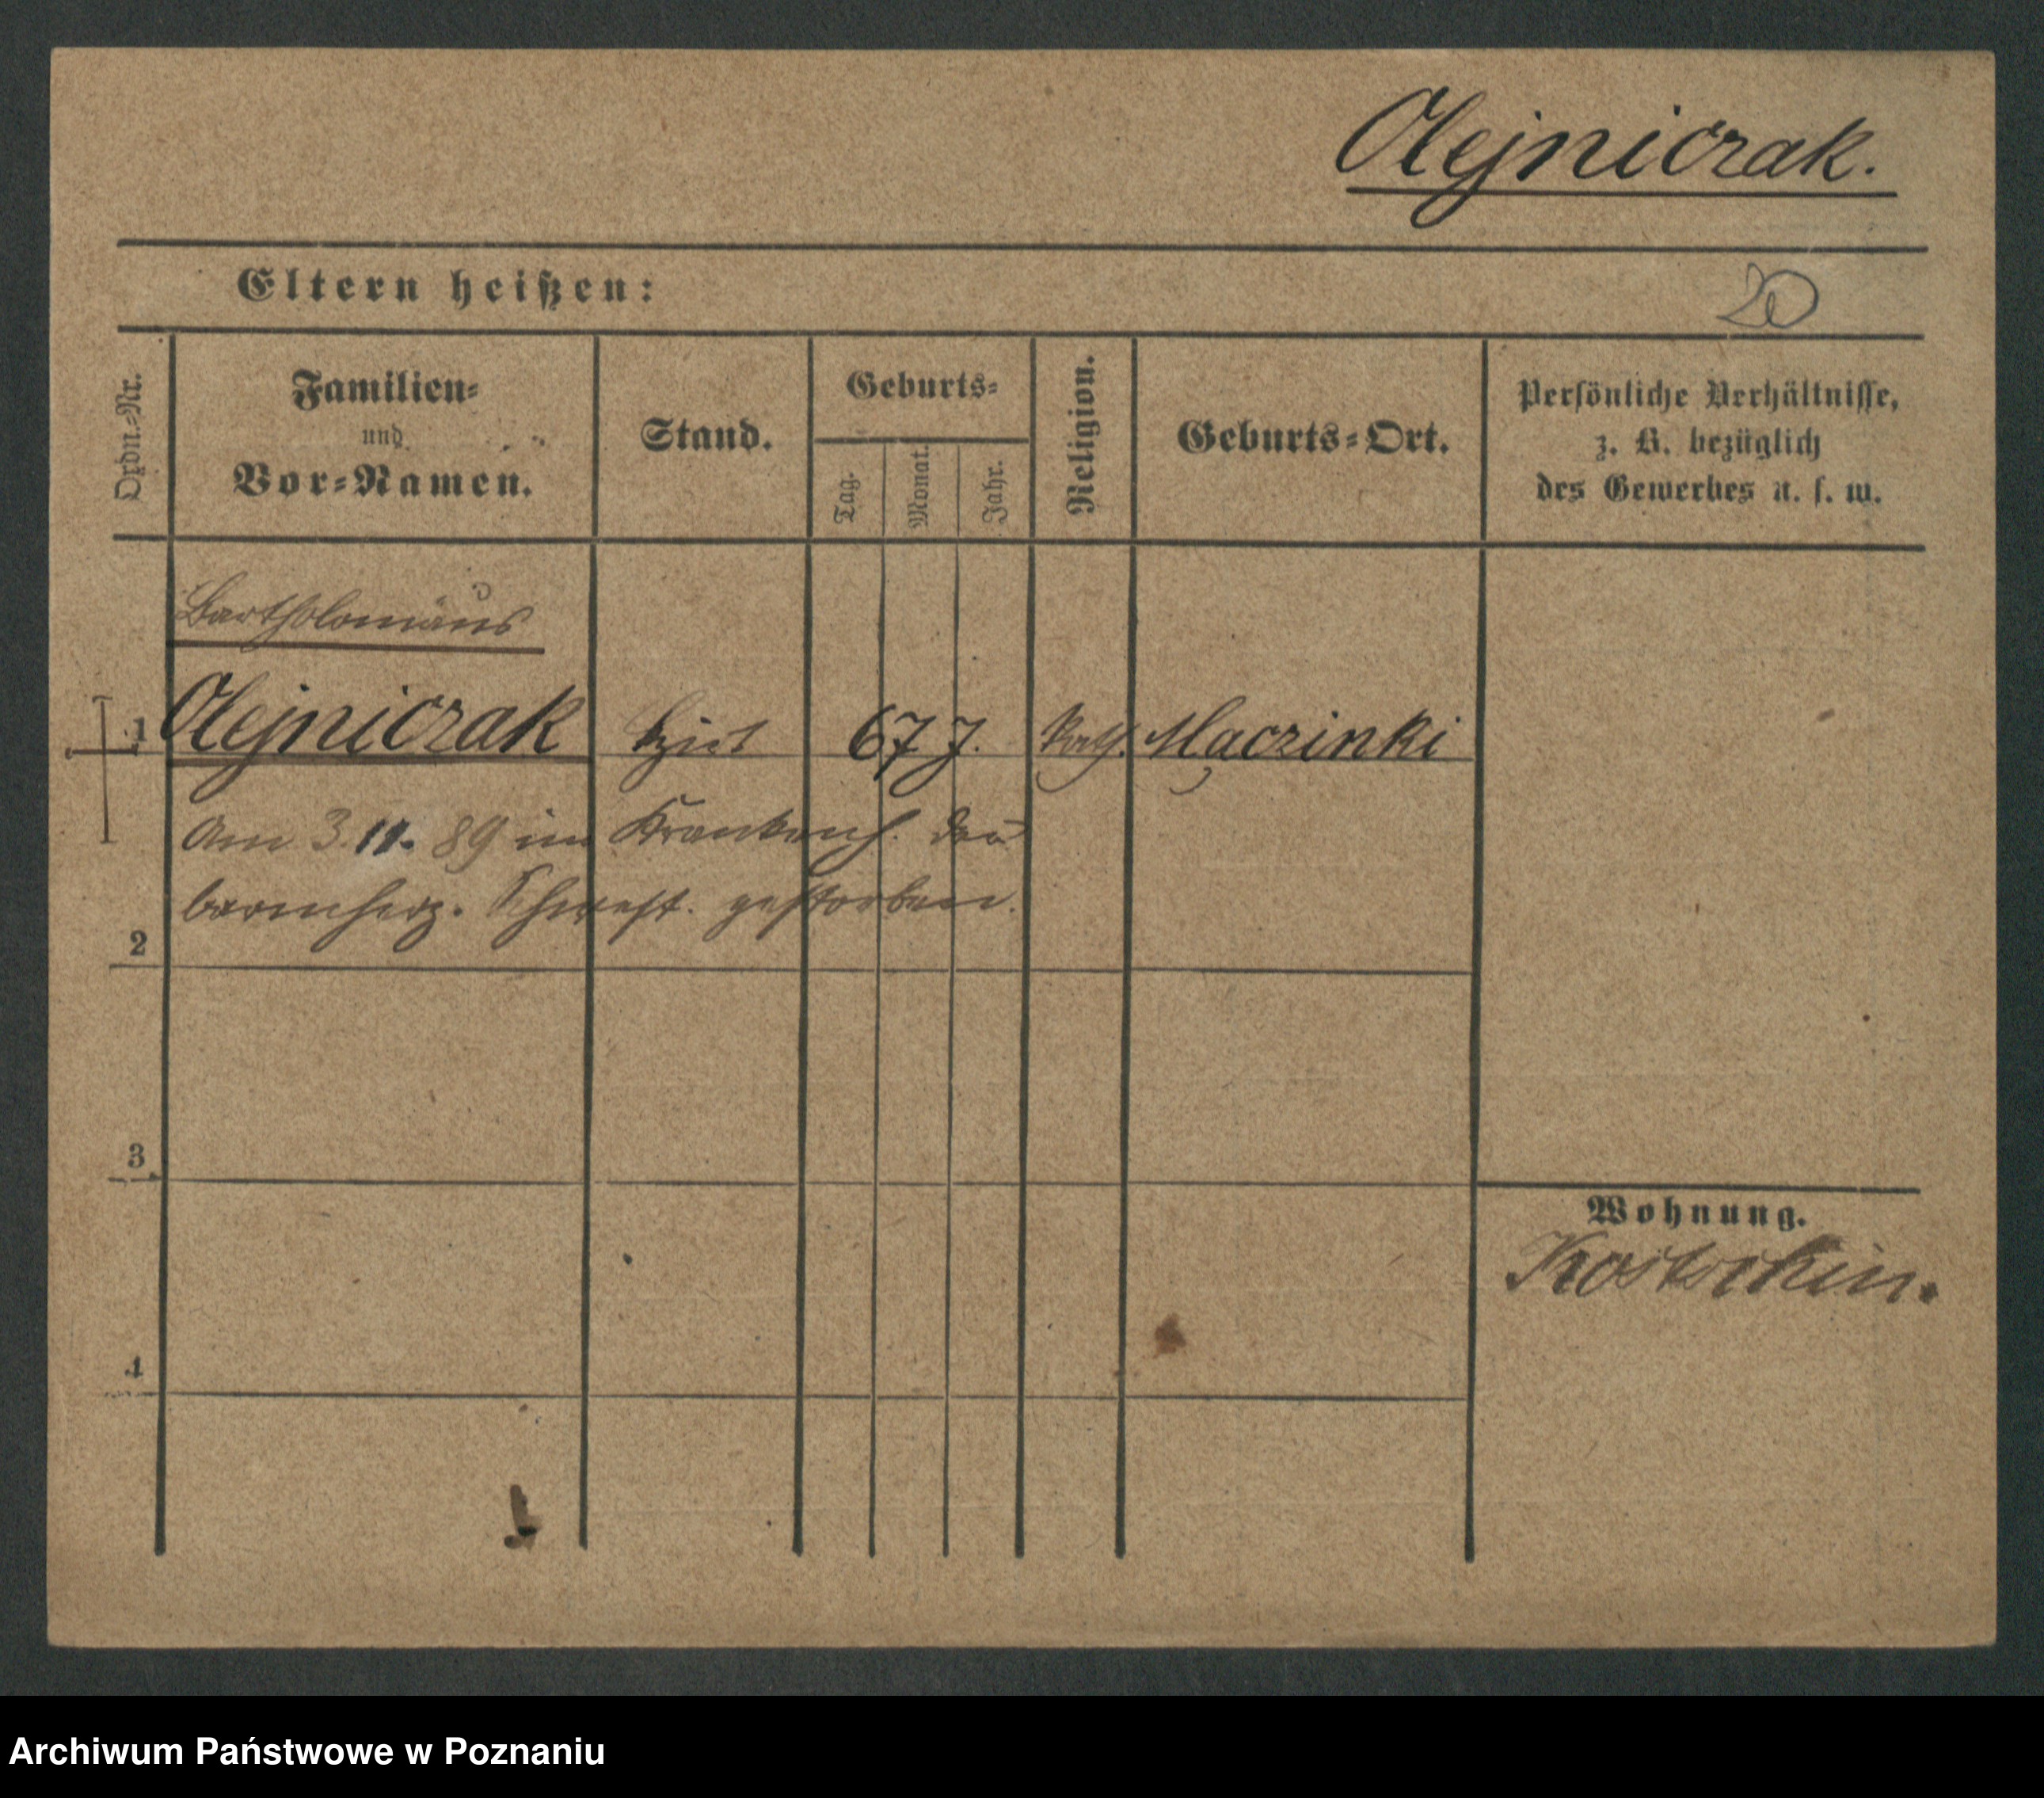 Olejniczak.
Eltern heißen:
20
Ordn.-Nr.
Familien-
und
Vor-Namen.
Stand.
Geburts-
Tag.
Monat.
Jahr.
Religion.
Geburts-Ort.
Persönliche Verhältnisse,
z. B. bezüglich
des Gewerbes u. s. w.
Bartholomäus
1 Olejniczak 67 J. kath. Maczinki
Am 3. 11. 89 im Krankenh. der
barmherz. Schwest. gestorben.
2
3
Wohnung.
Kostschin.
4
Archiwum Państwowe w Poznaniu